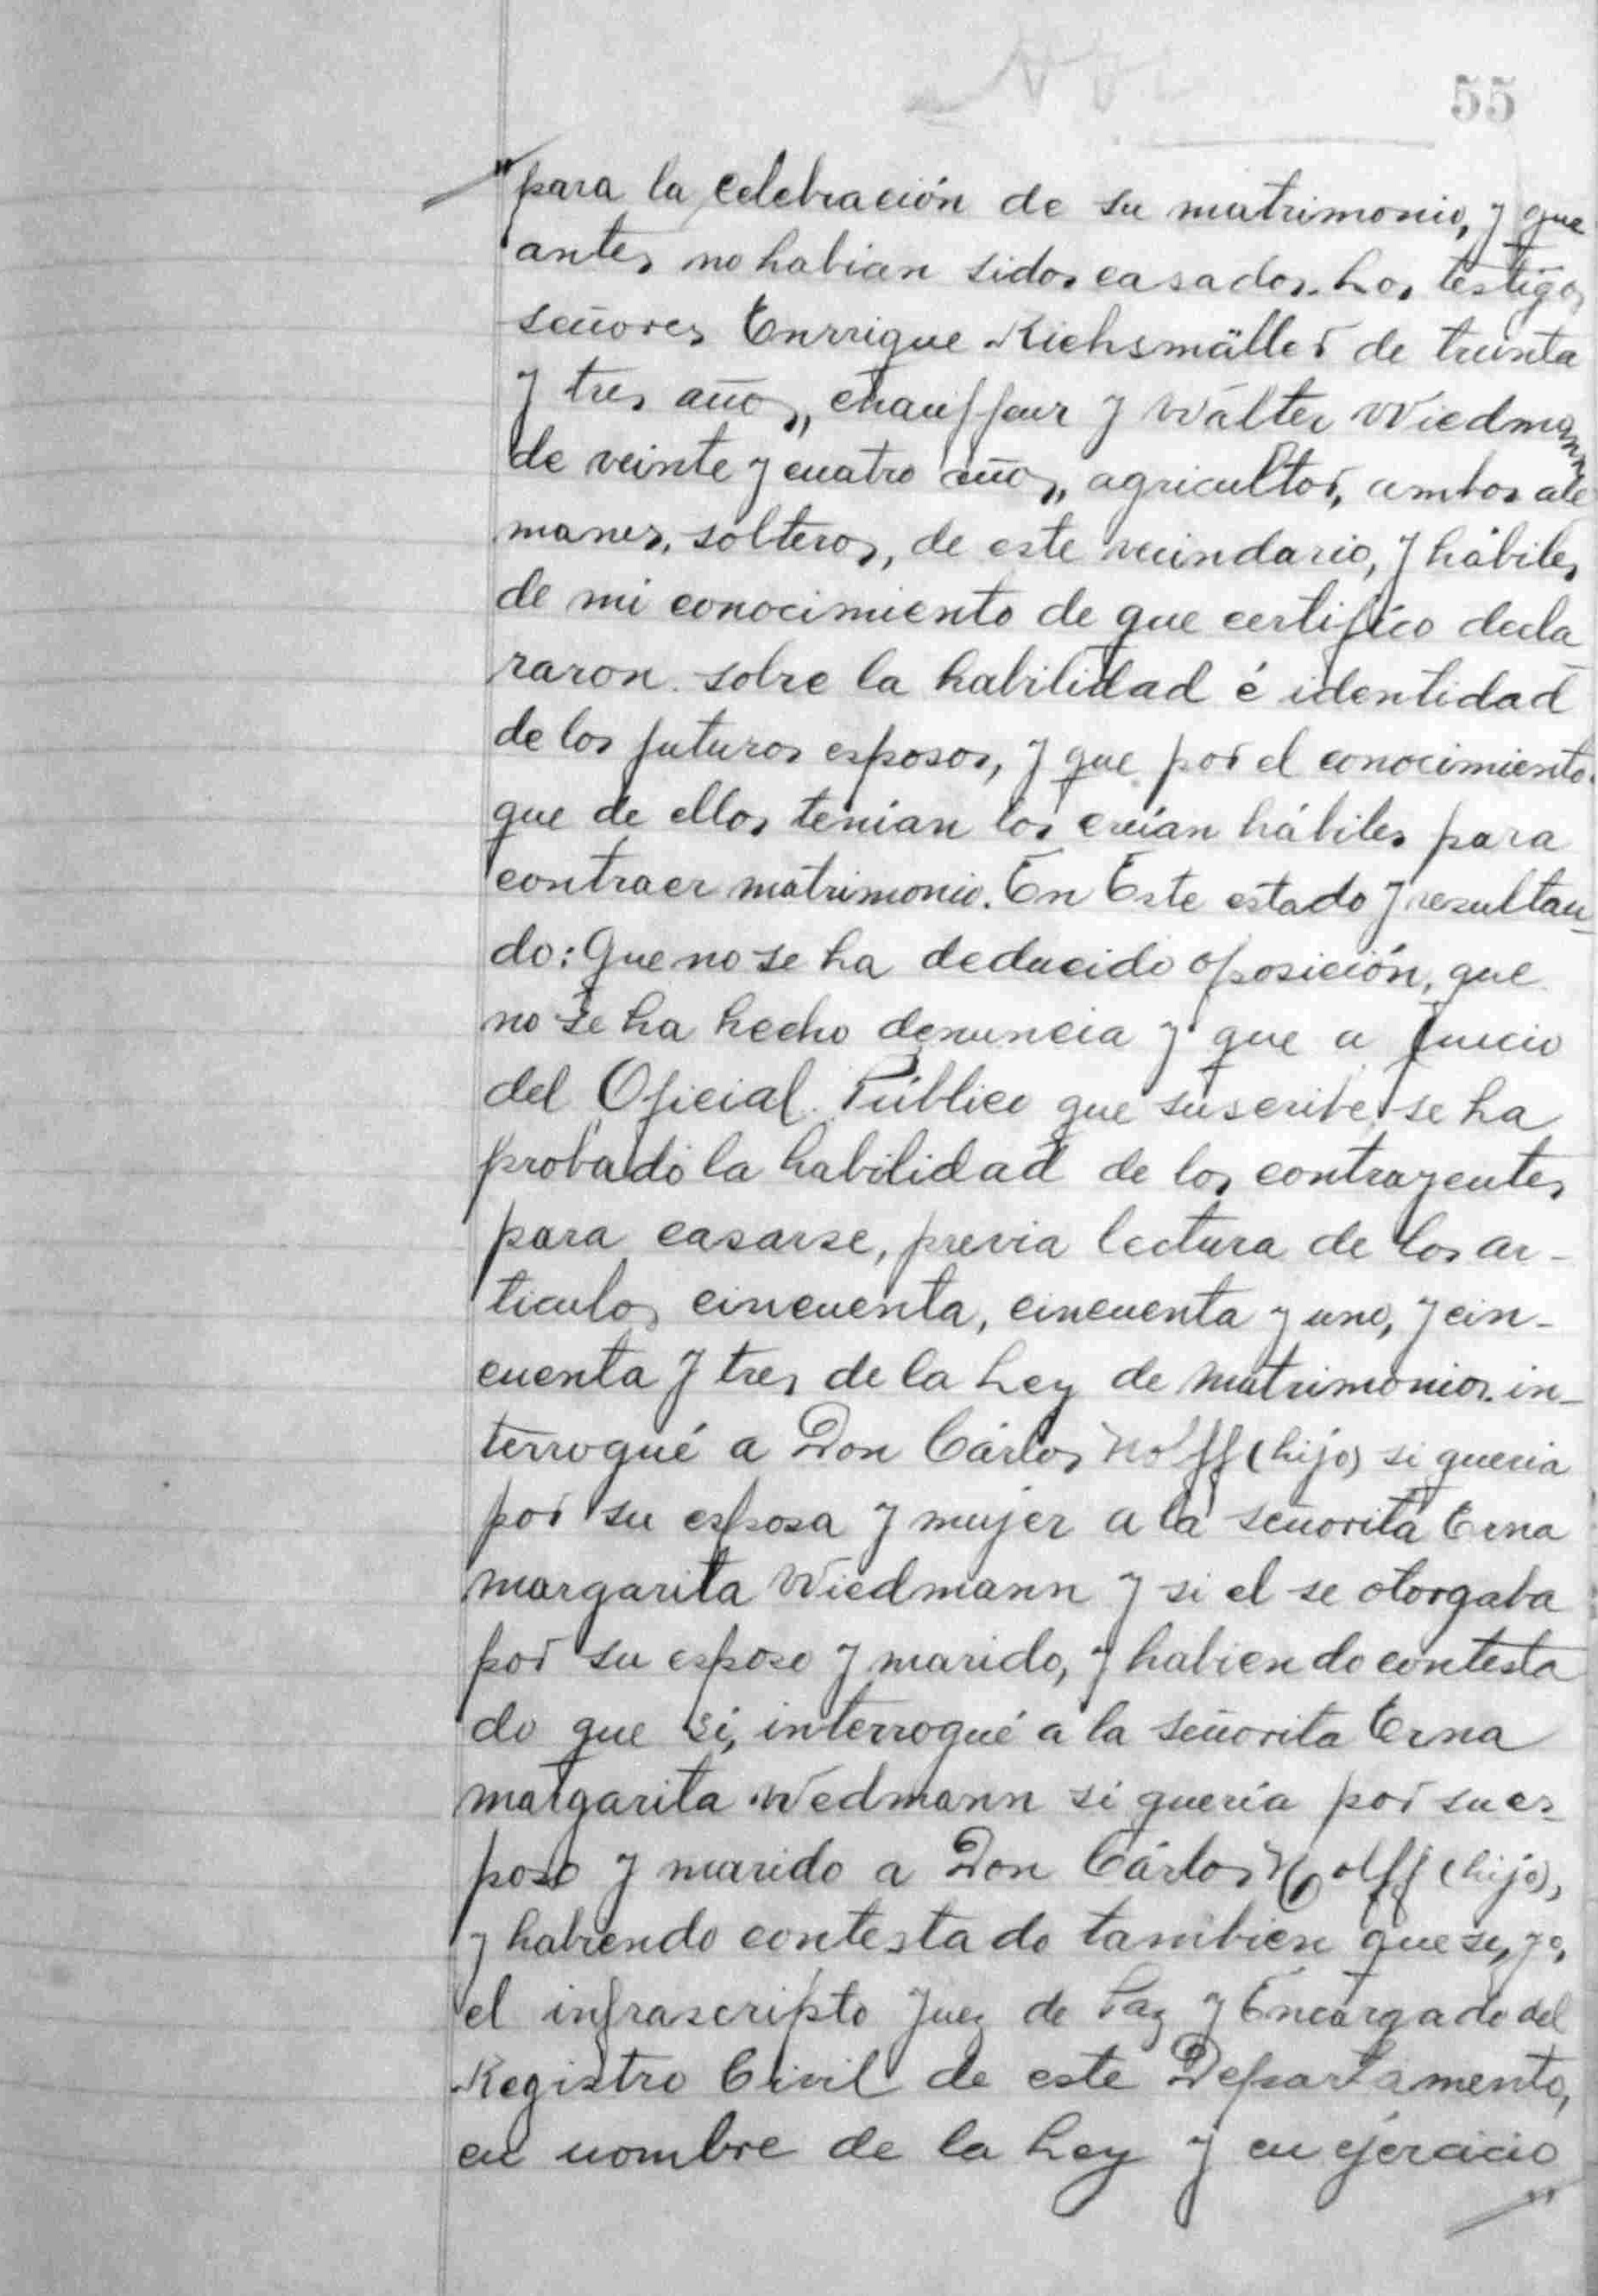 55
para la celebración de su matrimonio, y que
antes no habian sidos casados. Los testigos
señores Enrrique Richsmäller de treinta
y tres años, chauffeur y Wálter Wiedmann
de veinte y cuatro años, agricultor, ambos ale
manes, solteros, de este vecindario, y hábiles
de mi conocimiento de que certifico decla
raron sobre la habilidad é identidad
de los futuros esposos, y que por el conocimiento
que de ellos tenían los creían hábiles para
contraer matrimonio. En Este estado y resultan-
do: Que no se ha deducido oposición, que
no se ha hecho denuncia y que a juicio
del Oficial Público que suscribe se ha
probado la habilidad de los contrayentes
para casarse, previa lectura de los ar-
ticulos cincuenta, cincuenta y uno, y cin-
cuenta y tres de la Ley de matrimonios in-
terrogué a Don Cárlos Wolff (hijo) si queria
por su esposa y mujer a la señorita Erna
margarita Wiedmann y si el se otorgaba
por su esposo y marido, y habiendo contesta
do que si, interrogué a la señorita Erna
margarita Wedmann si quería por su es-
poso y marido a Don Cárlos Wolff (hijo),
y habiendo contestado tambien que si, yo,
el infrascripto Juez de Paz y Encargado del
Registro Civil de este Departamento,
en nombre de la Ley y en ejercicio